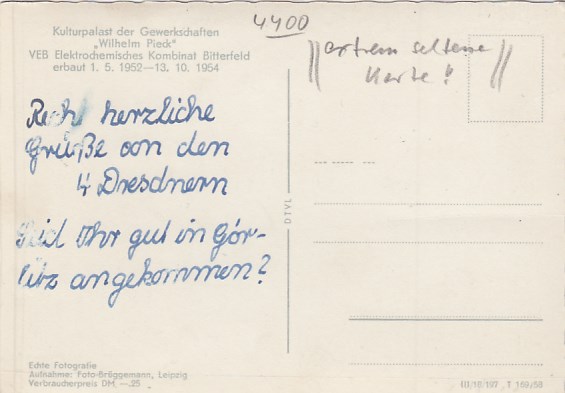 Kulturpalast der Gewerkschaften
„Wilhelm Pieck“
VEB Elektrochemisches Kombinat Bitterfeld
erbaut 1. 5. 1952—13. 10. 1954
4400
extrem seltene
Karte!
Recht herzliche
Grüße von den
4 Dresdnern
Seid Ihr gut in Gör-
litz angekommen?
DTVL
Echte Fotografie
Aufnahme: Foto-Brüggemann, Leipzig
Verbraucherpreis DM —.25
III/18/197 T 169/58